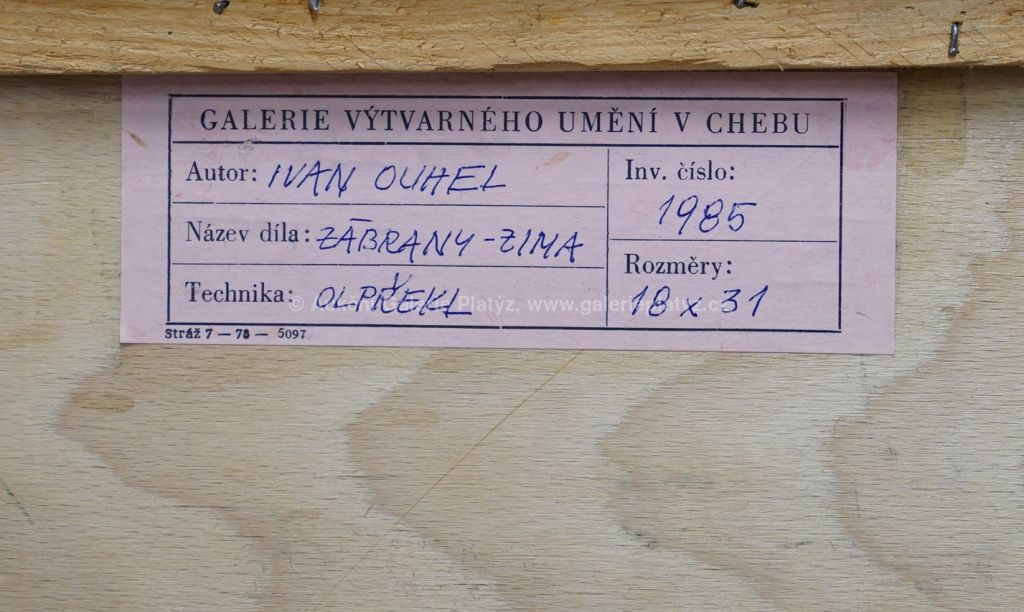 GALERIE VÝTVARNÉHO UMĚNÍ V CHEBU
Autor: IVAN OUHEL
Inv. číslo:
1985
Název díla: ZÁBRANY-ZIMA
Technika: OL PŘEKL
Rozměry:
18 x 31
Stráž 7 — 78 — 5097
© Galerie Platýz, www.galerieplatyz.cz